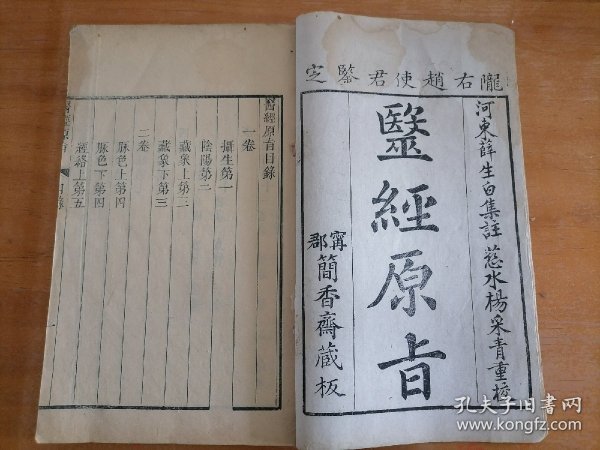 隴右趙使君鑒定
河東薛生白集註 慈水楊采青重校
醫經原旨
甯郡簡香齋藏板
醫經原旨目錄
一卷
攝生第一
陰陽第二
藏象上第三
藏象下第三
二卷
脉色上第四
脉色下第四
經絡上第五
醫經原旨 目錄
孔夫子旧书网
www.kongfz.com